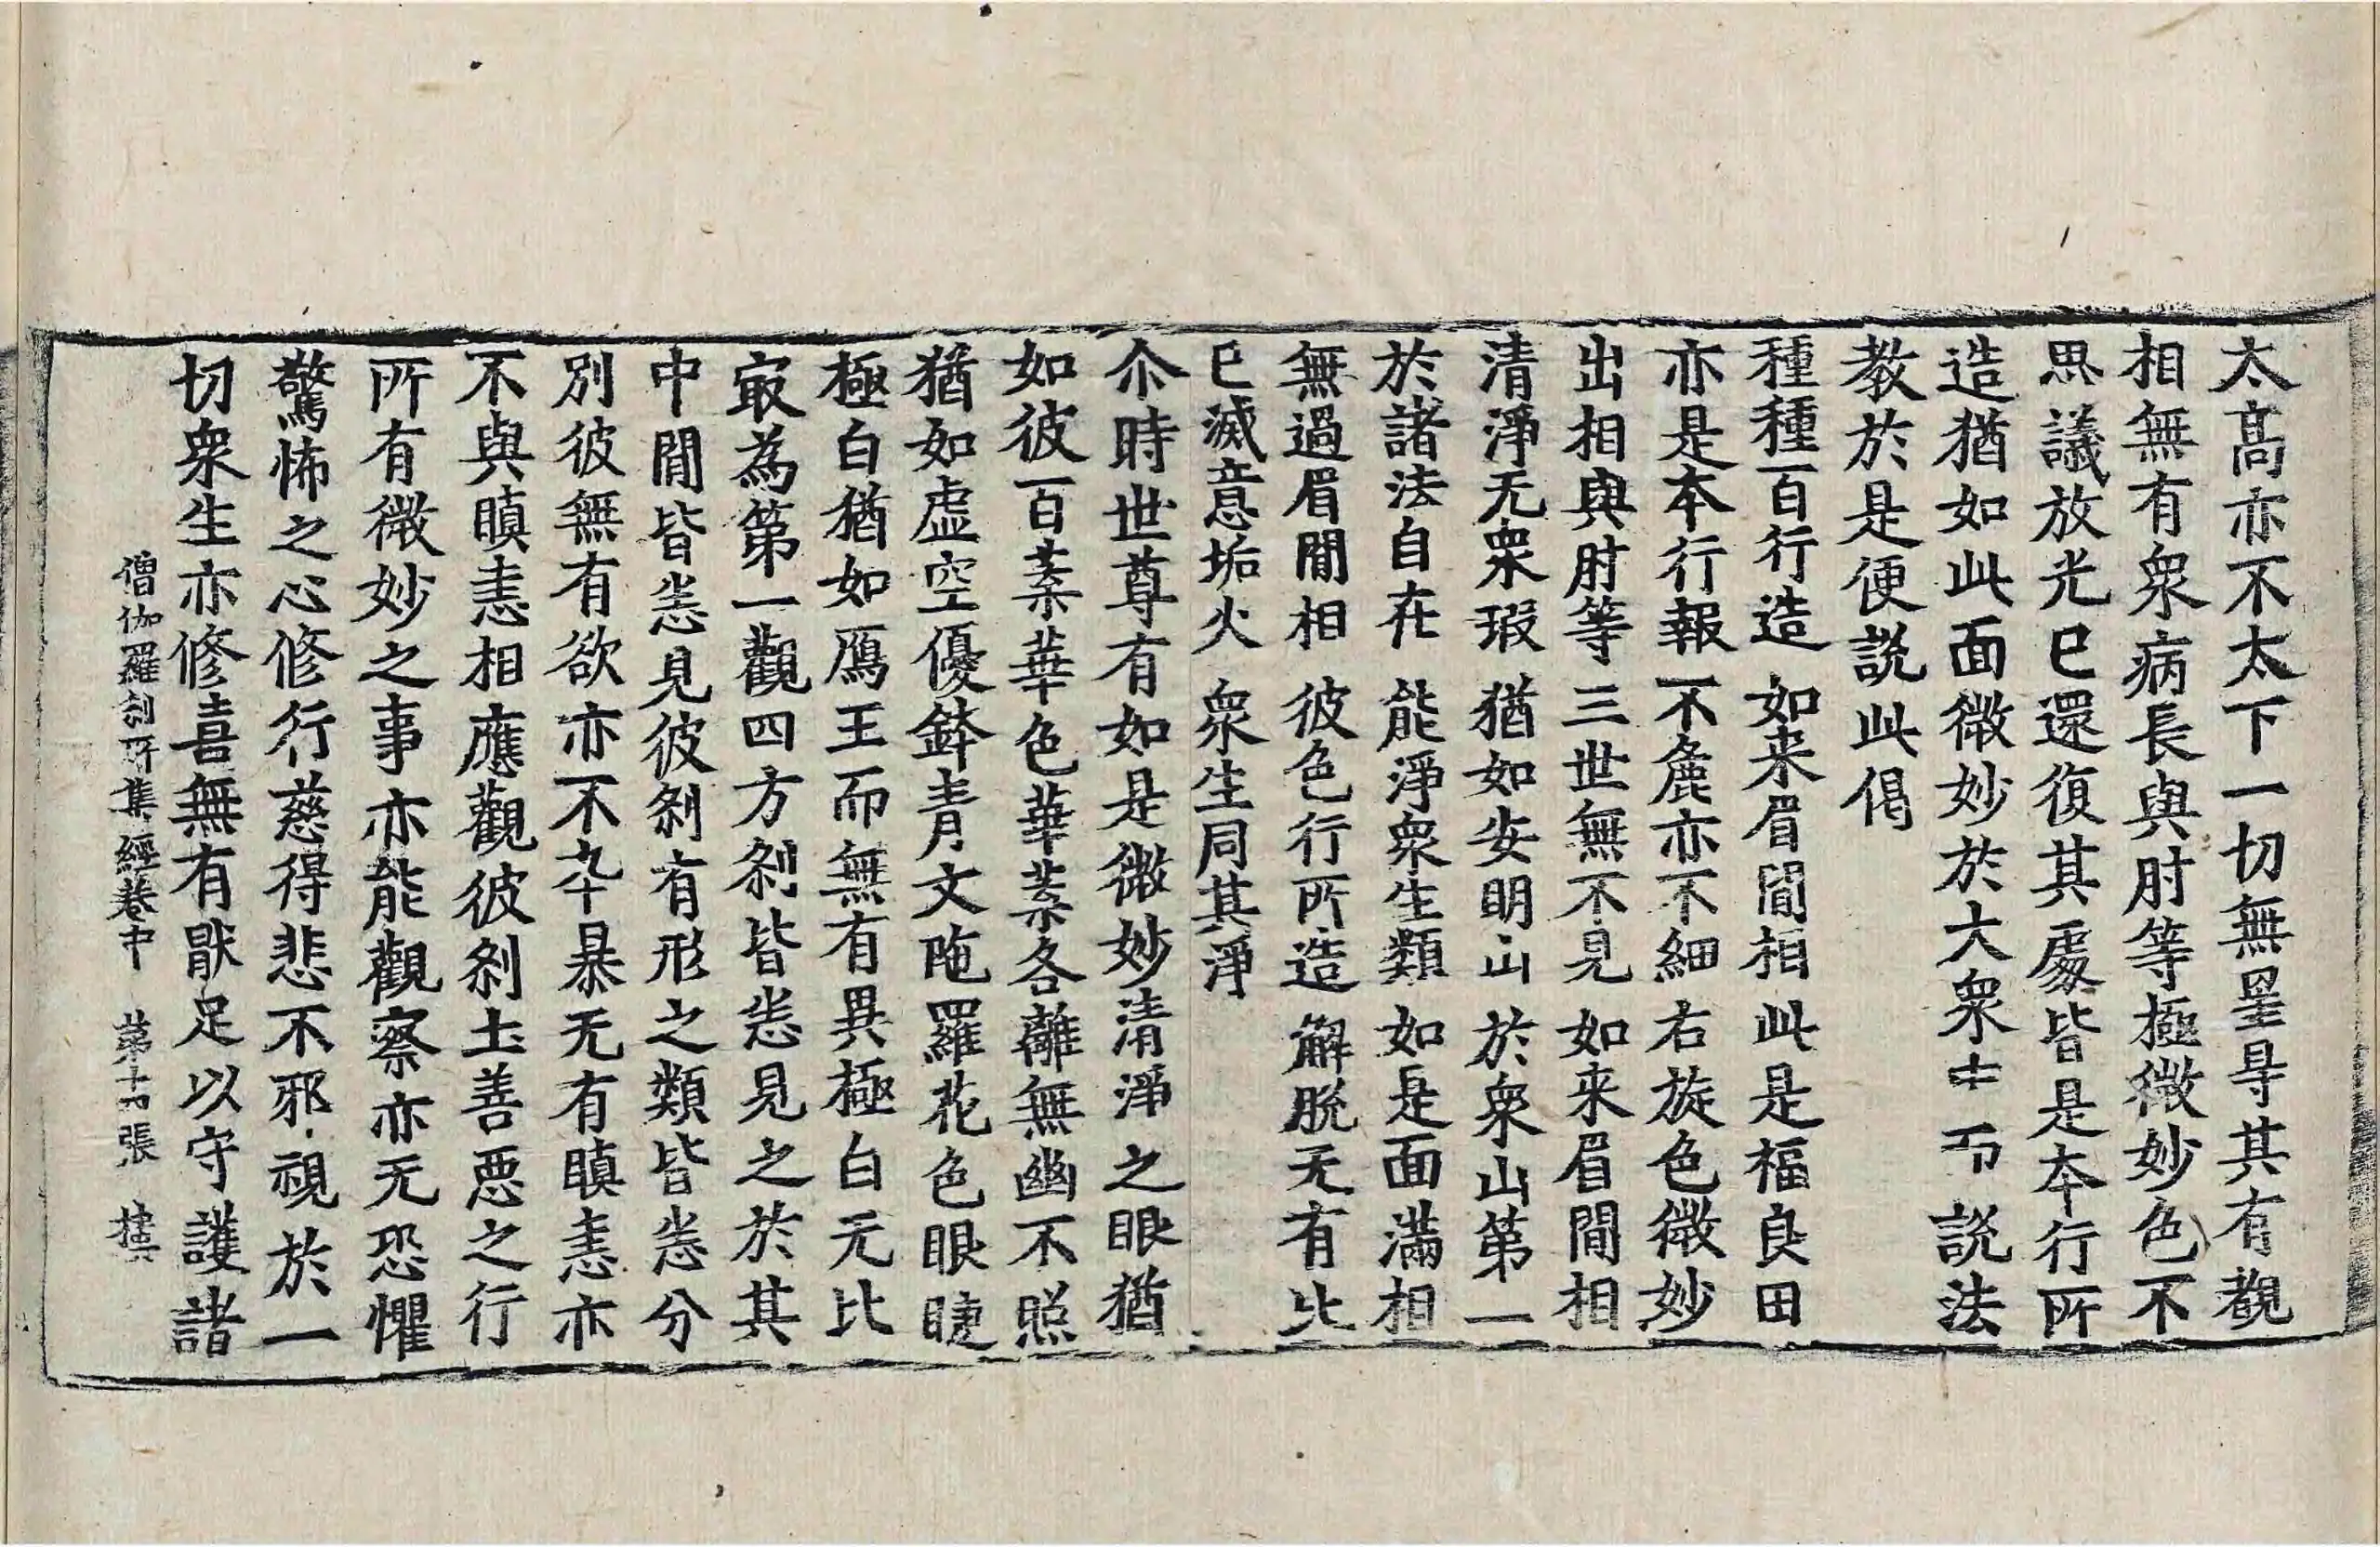 太高亦不太下一切無罣㝵其有觀
相無有衆病長與肘等極微妙色不
思議放光已還復其處皆是本行所
造猶如此面微妙於大衆中而說法
教於是便説此偈
種種百行造 如来眉間相 此是福良田
亦是本行報 不麁亦不細 右旋色微妙
出相與肘等 三世無不見 如来眉間相
清淨无衆瑕 猶如安明山 於衆山第一
於諸法自在 能淨衆生類 如是面滿相
無過眉間相 彼色行所造 解脫无有比
已滅意垢火 衆生同其淨
尒時世尊有如是微妙清淨之眼猶
如彼百葉華色華葉各離無幽不照
猶如虛空優鉢青文陁羅花色眼睫
極白猶如鴈王而無有異極白无比
㝡為第一觀四方刹皆悉見之於其
中間皆悉見彼刹有形之類皆悉分
別彼無有欲亦不卒暴无有瞋恚亦
不與瞋恚相應觀彼刹土善惡之行
所有微妙之事亦能觀察亦无恐懼
驚怖之心修行慈得悲不邪視於一
切衆生亦修喜無有猒足以守護諸
僧伽羅刹所集經卷中 第十 張